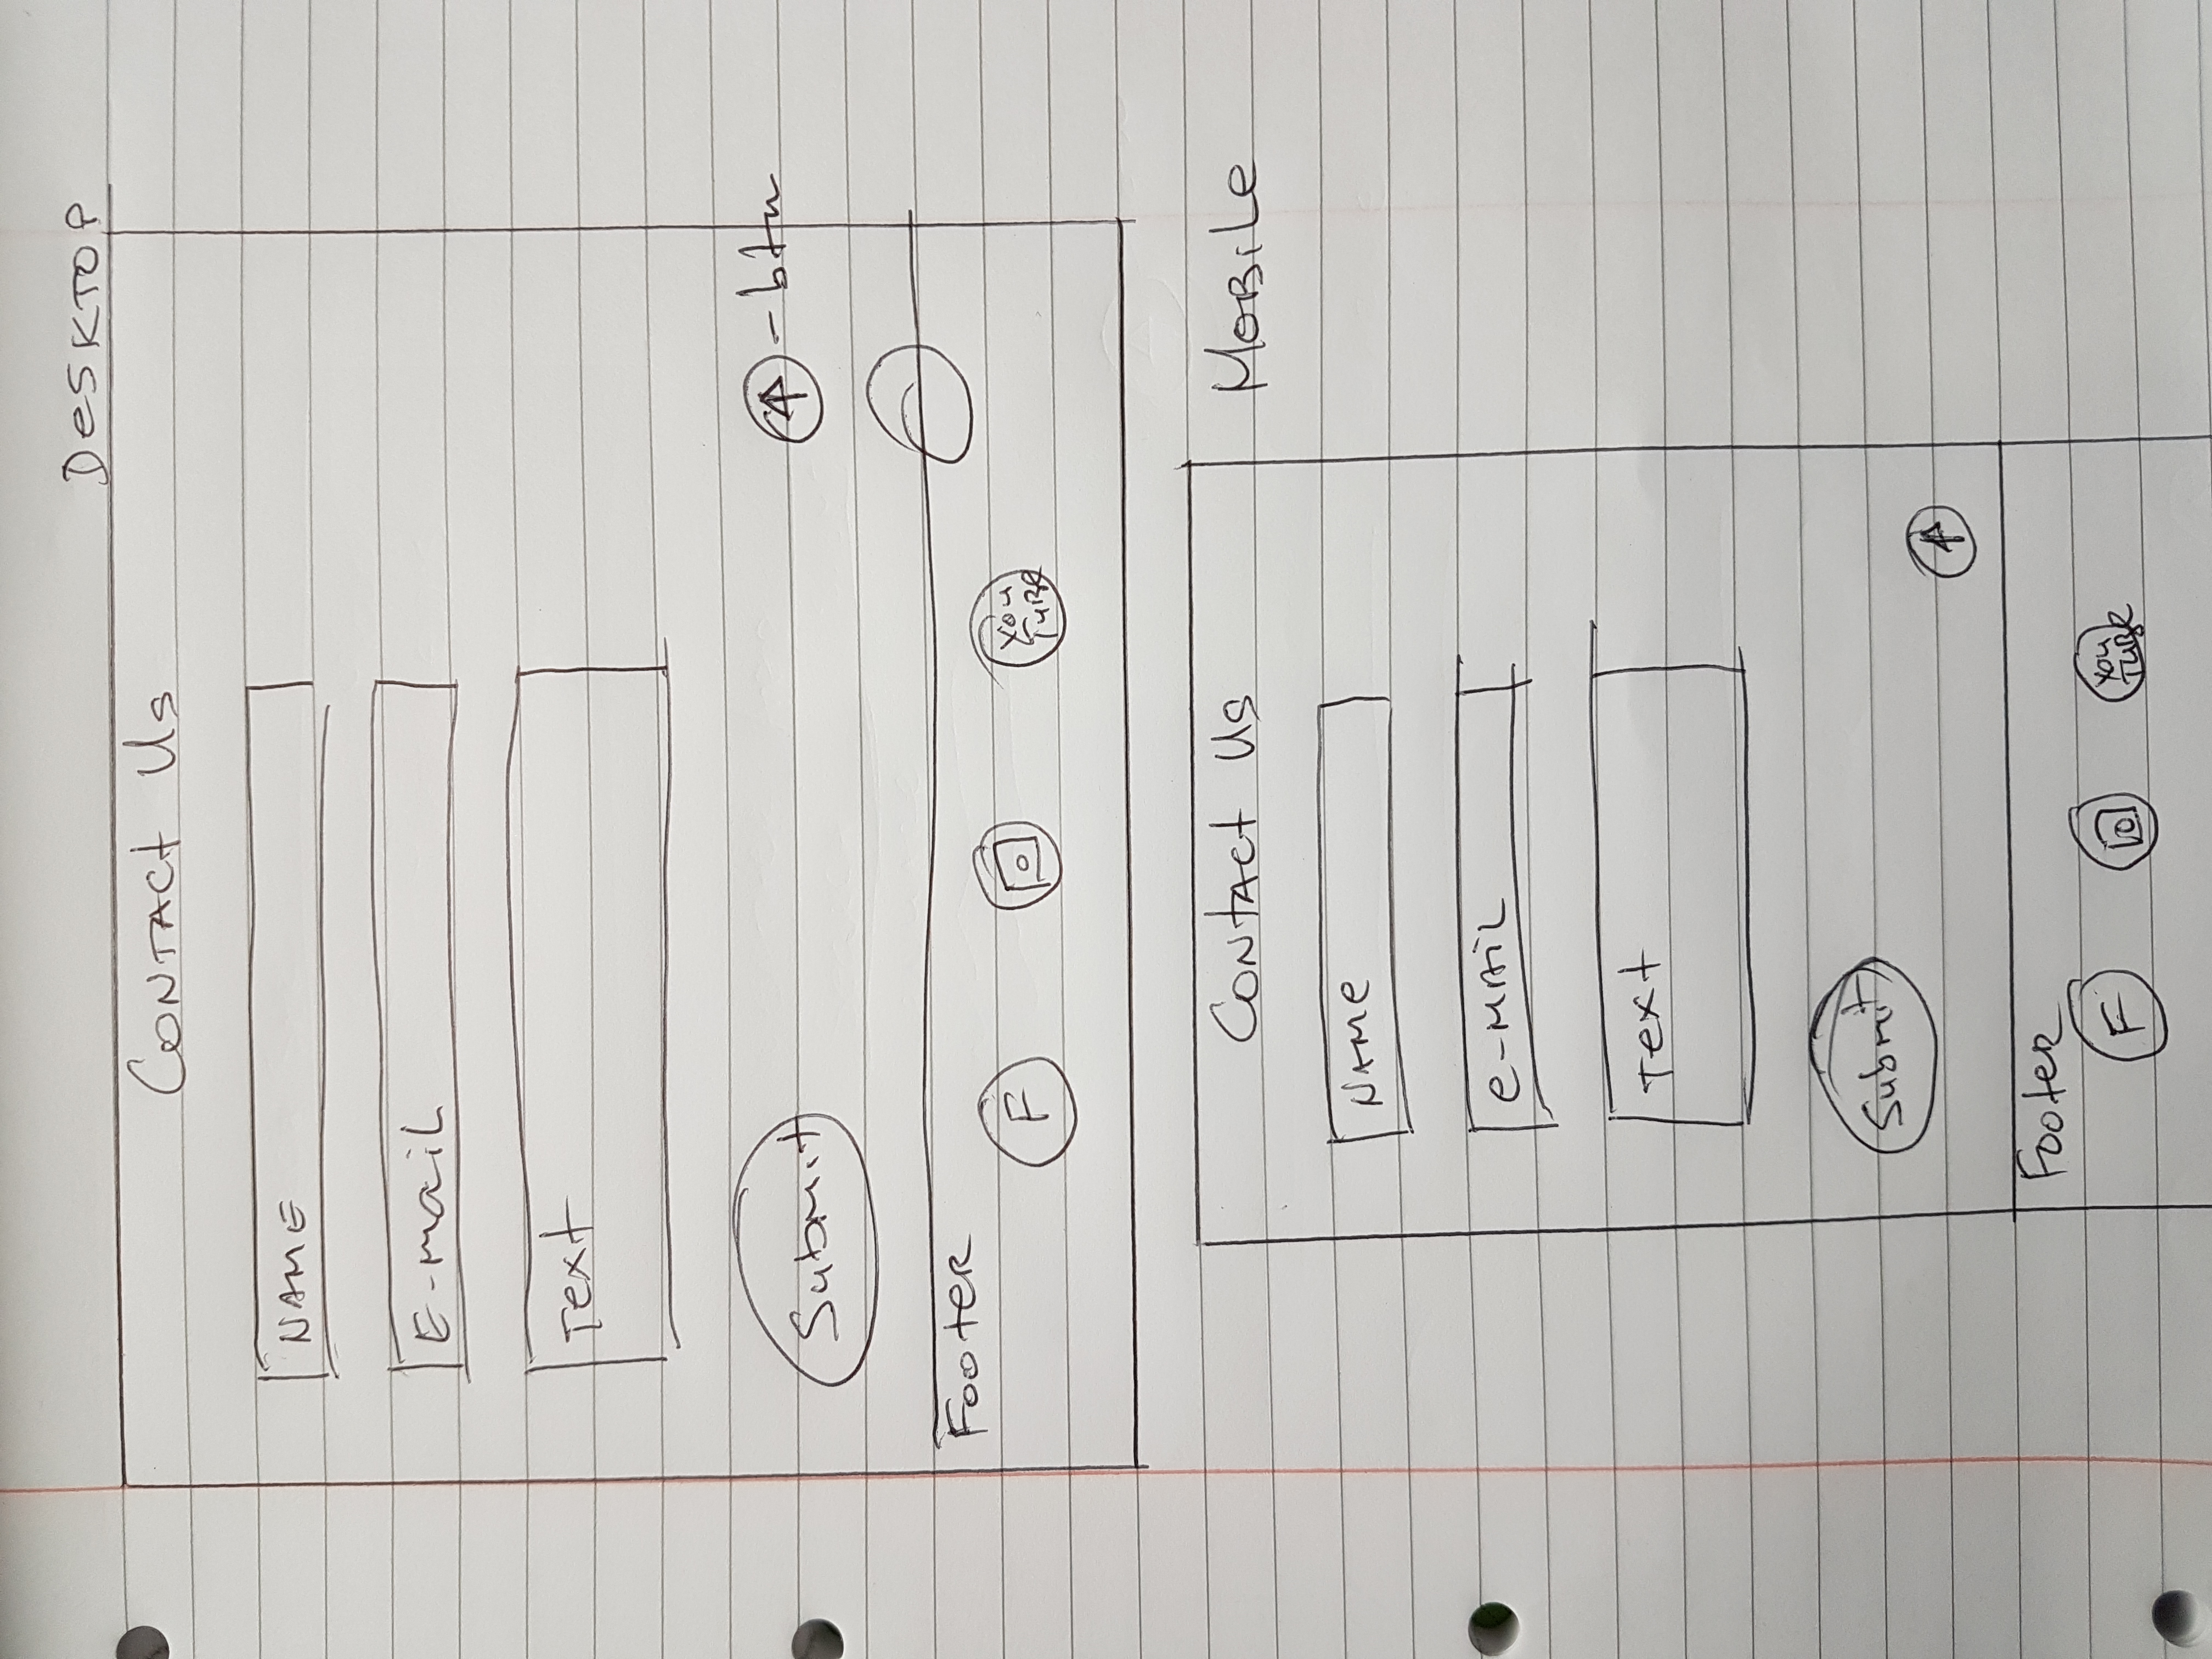 DESKTOP
CONTACT Us
NAME
E-mail
Text
Submit
- btn
Footer
F
You
TUBE
CONTACT Us
MOBiLe
NAMe
e-MAiL
Text
Submit
Footer
F
You
TUBE